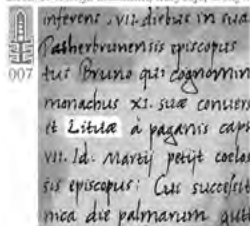 inferens .VII. diebus in sua
Patherbrunensis episcopus
007 tus Bruno qui cognomin
monachus XI. suæ conuers
et Lituæ à paganis capi
VII. Id. Martij petijt coelos
sis episcopus: Cui successit
mca die palmarum